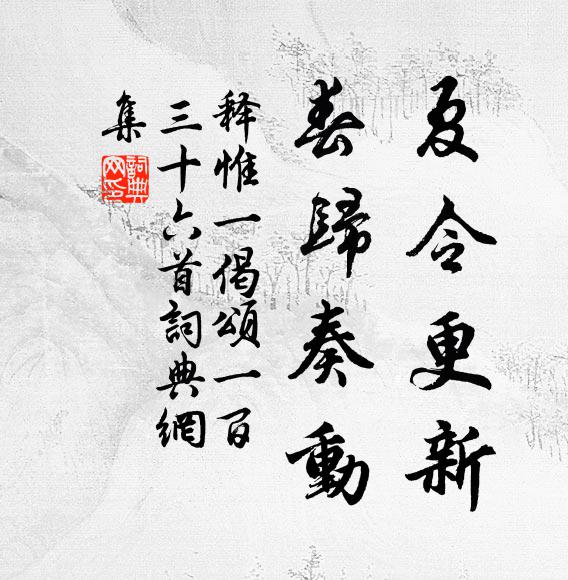 夏令更新
春歸奏動
释惟一偈頌一百
三十六首詞典網
集
詞典网印